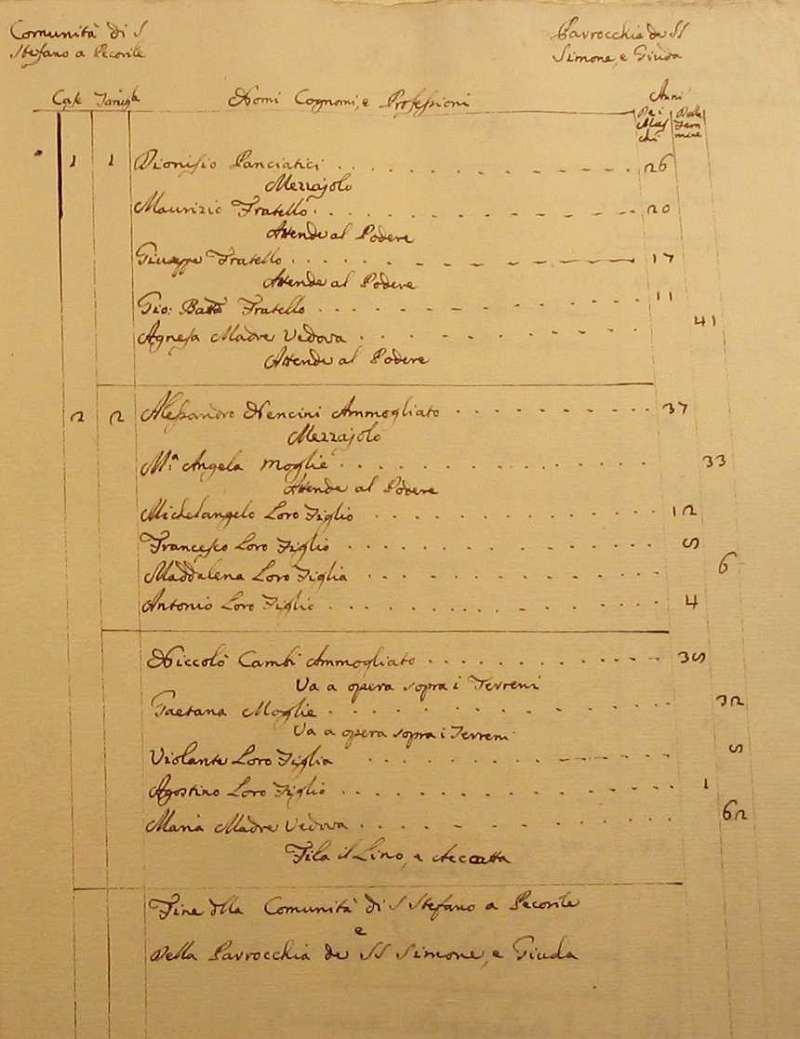 Comunità di S
Stefano a Pecorile
Parrocchia de SS
Simone, e Giuda
Case Famiglie Nomi Cognomi, e Professioni Anni
Dei Maschi Delle Femmine
1 1 Dionisio Panciatici 26
Mezzajolo
Maurizio Fratello 20
Attende al Podere
Giuseppe Fratello 17
Attende al Podere
Gio: Batta Fratello 11
Agnesa Madre Vedova 41
Attende al Podere
2 2 Alessandro Nencini Ammogliato 37
Mezzajolo
Ma Angela Moglie 33
Attende al Podere
Michelangelo Loro Figlio 12
Francesco Loro Figlio 5
Maddalena Loro Figlia 6
Antonio Loro Figlio 4
Niccolò Cambi Ammogliato 35
Va a opera sopra i Terreni
Gaetana Moglie 32
Va a opera sopra i Terreni
Violante Loro Figlia 5
Agostino Loro Figlio 1
Maria Madre Vedova 62
Fila il Lino, e Accatta
Fine della Comunità di S Stefano a Pecorile
e
Della Parrocchia de SS Simone, e Giuda